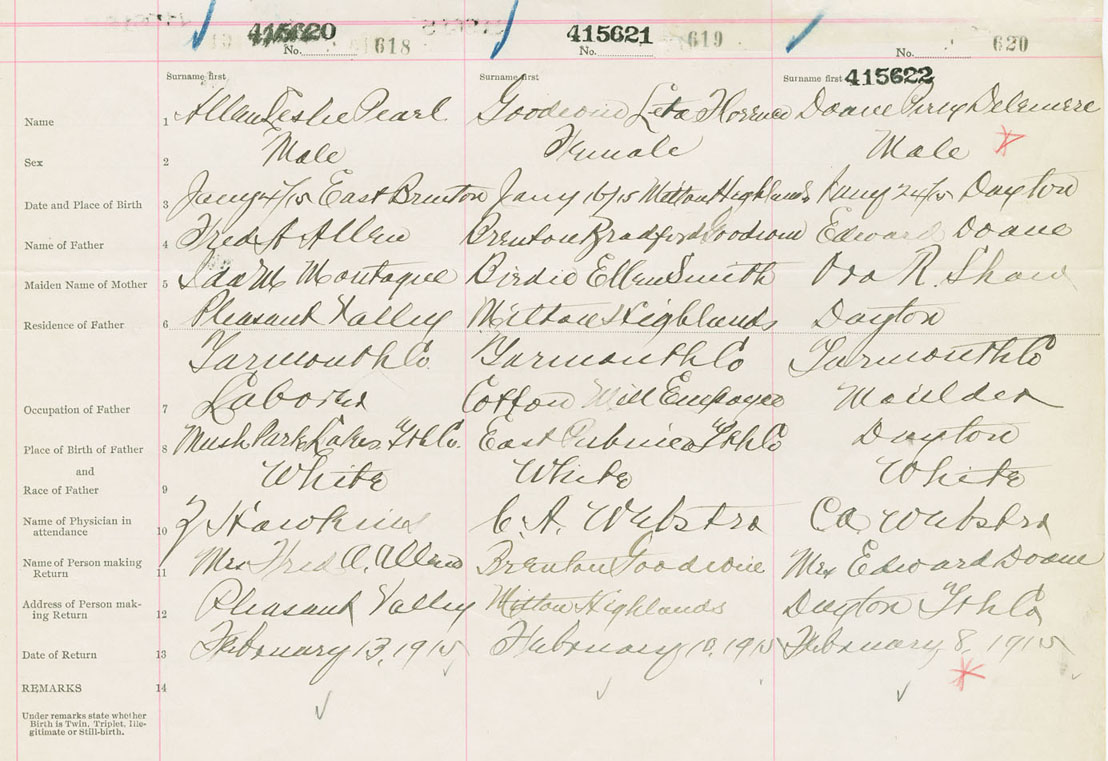 415620 415621
No. 618 No. 619 No. 620
Surname first Surname first Surname first 415622
Name 1 Allen Leslie Pearl Goodwin Leta Florence Doane Percy Delemere
Sex 2 Male Female Male
Date and Place of Birth 3 Jany 4/15 East Brenton Jany 16/15 Milton Highlands Jany 24/15 Dayton
Name of Father 4 Fred A Allen Brenton Bradford Goodwin Edward Doane
Maiden Name of Mother 5 Ida M Montague Birdie Ellen Smith Ora R. Shaw
Residence of Father 6 Pleasant Valley Milton Highlands Dayton
Yarmouth Co. Yarmouth Co Yarmouth Co
Occupation of Father 7 Laborer Cotton Mill Employee Moulder
Place of Birth of Father 8 Lakes Yth Co. East Pubnico Yth Co Dayton
and
Race of Father 9 White White White
Name of Physician in
attendance 10 Z Hawkins C. A. Webster C A Webster
Name of Person making
Return 11 Mrs Fred A. Allen Brenton Goodwin Mrs Edward Doane
Address of Person mak-
ing Return 12 Pleasant Valley Milton Highlands Dayton Yth Co
Date of Return 13 February 13, 1915 February 10, 1915 February 8, 1915
REMARKS 14
Under remarks state whether
Birth is Twin, Triplet, Ille-
gitimate or Still-birth.